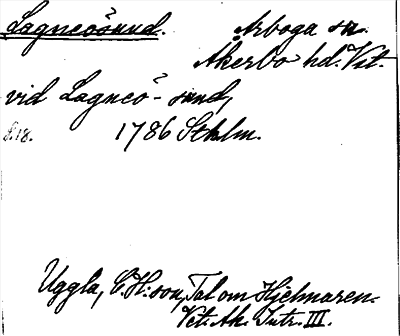 Lagneösund. Arboga sn.
Akerbo hd. Vstm.
vid Lagneö-sund,
s. 18. 1786 Sthlm.
Uggla, C. H:son, Tal om Hjelmaren.
Vet. Ak. Intr. III.